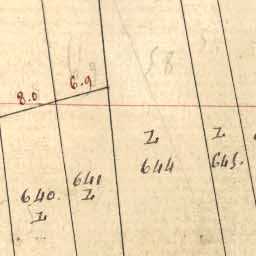 8.0
6.9
Z
644
Z
645.
641
Z
640.
Z